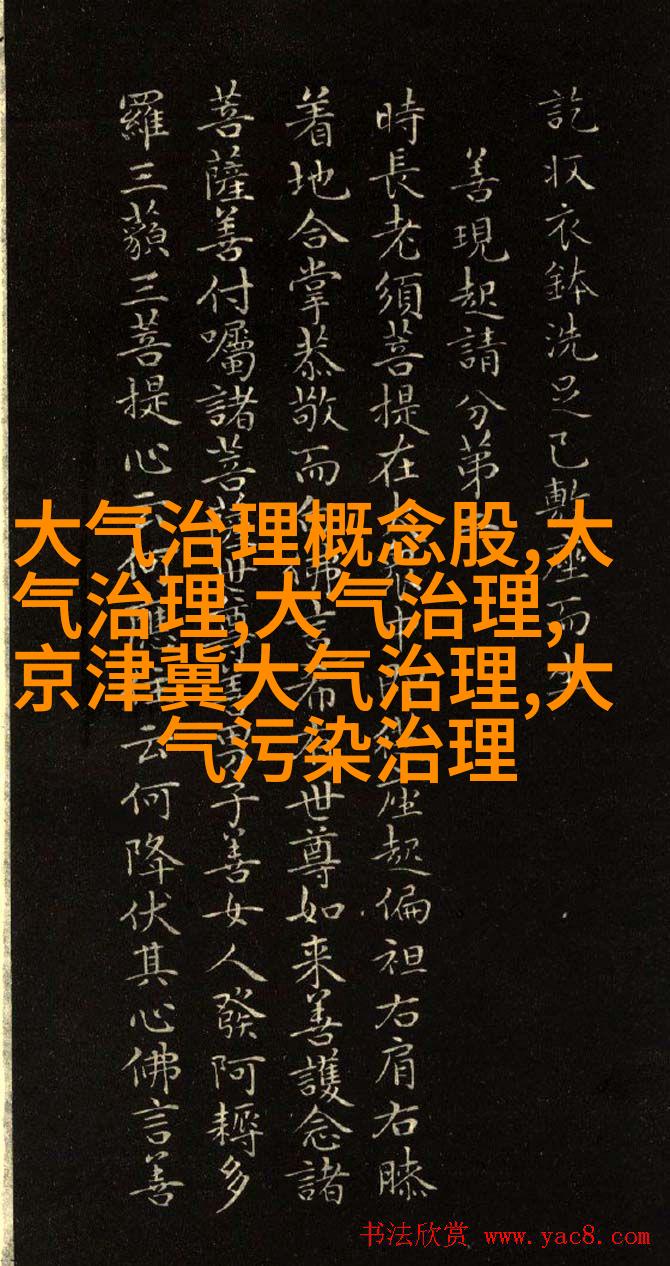 訖収衣鉢洗足已敷座而坐
善現起請分第
時長老須菩提在大衆中即從座起偏袒右肩右膝
着地合掌恭敬而白佛言希有世尊如来善護念諸
菩薩善付囑諸菩薩世尊善男子善女人發阿耨多
羅三藐三菩提心云何應住云何降伏其心佛言善
大气治理概念股,大
气治理,大气治理,
京津冀大气治理,大
气污染治理
书法欣赏 www.yac8.com